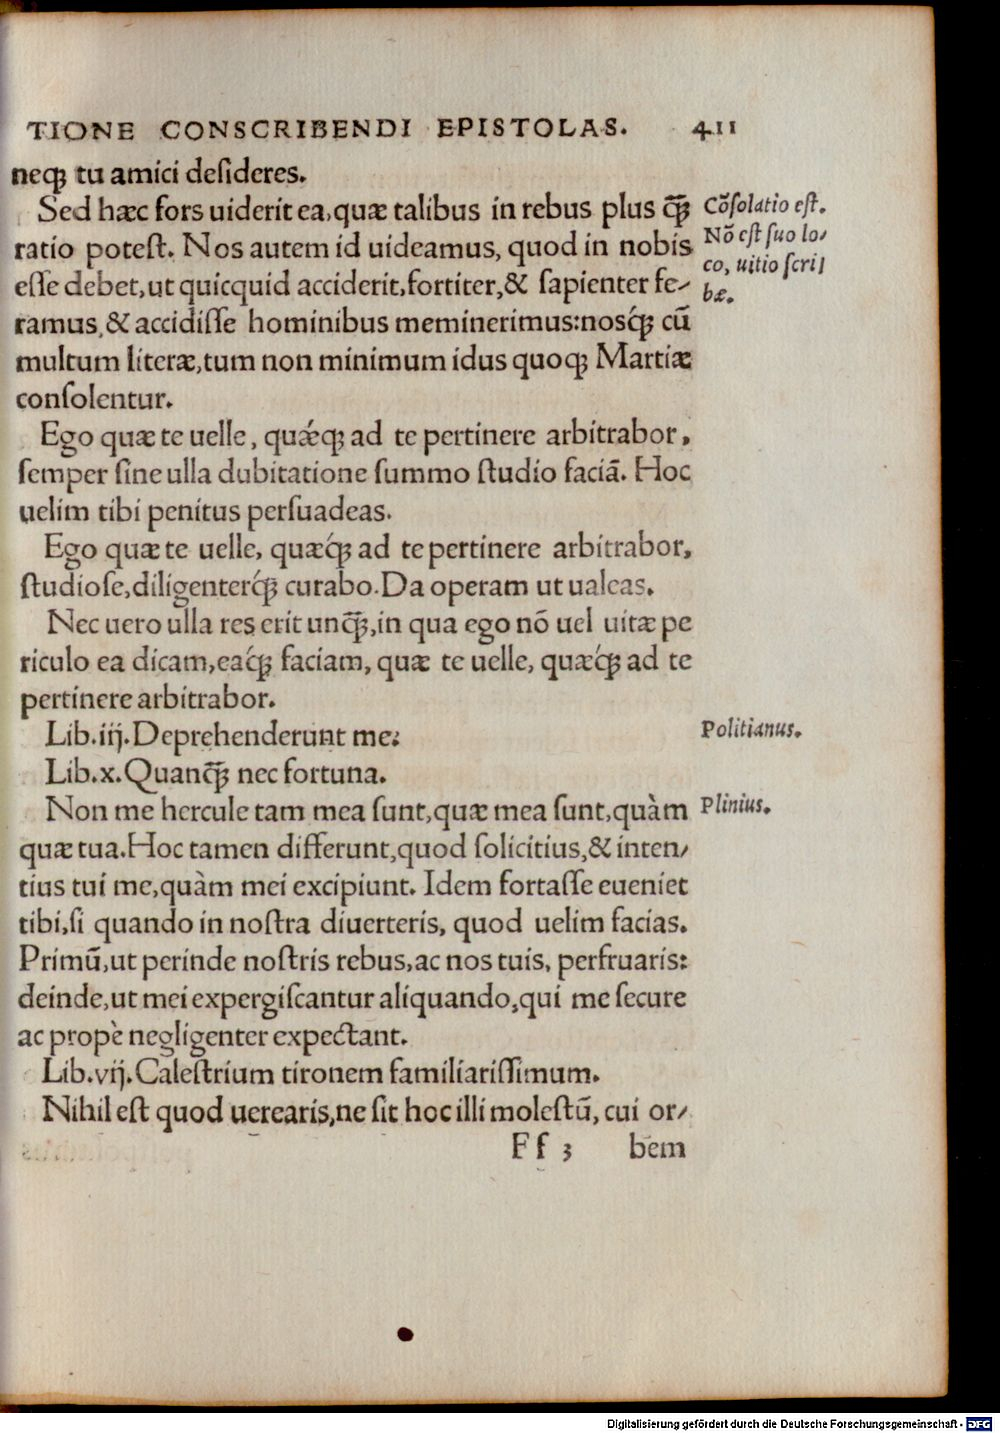 TIONE CONSCRIBENDI EPISTOLAS. 411
neqꝫ tu amici deſideres.
Sed hæc fors uiderit ea,quæ talibus in rebus plus q̄ꝫ
Cōſolatio eſt.
ratio poteſt. Nos autem id uideamus, quod in nobis
Nō eſt ſuo lo⸗
eſſe debet,ut quicquid acciderit,fortiter,& ſapienter fe⸗
co, uitio ſcri⸗
bæ.
ramus,& accidiſſe hominibus meminerimus:noſq́ꝫ cū
multum literæ,tum non minimum idus quoqꝫ Martiæ
conſolentur.
Ego quæ te uelle, quǽqꝫ ad te pertinere arbitrabor,
ſemper ſine ulla dubitatione ſummo ſtudio faciā. Hoc
uelim tibi penitus perſuadeas.
Ego quæ te uelle, quæq́ꝫ ad te pertinere arbitrabor,
ſtudioſe,diligenterq́ꝫ curabo.Da operam ut ualeas.
Nec uero ulla res erit unq̄ꝫ,in qua ego nō uel uitæ pe
riculo ea dicam,eaq́ꝫ faciam, quæ te uelle, quæq́ꝫ ad te
pertinere arbitrabor.
Lib.iij.Deprehenderunt me:
Politianus.
Lib.x.Quanq̄ꝫ nec fortuna.
Non me hercule tam mea ſunt,quæ mea ſunt,quàm
Plinius.
quæ tua.Hoc tamen differunt,quod ſolicitius,& inten⸗
tius tui me,quàm mei excipiunt. Idem fortaſſe eueniet
tibi,ſi quando in noſtra diuerteris, quod uelim facias.
Primū,ut perinde noſtris rebus,ac nos tuis, perfruaris:
deinde,ut mei expergiſcantur aliquando,qui me ſecure
ac propè negligenter expectant.
Lib.vij.Caleſtrium tironem familiariſſimum.
Nihil eſt quod uerearis,ne ſit hoc illi moleſtū, cui or⸗
Ff 3 bem
Digitalisierung gefördert durch die Deutsche Forschungsgemeinschaft - DFG